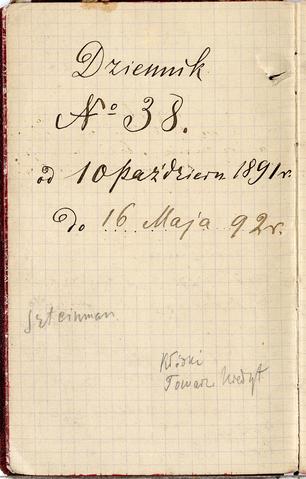 Dziennik
No 38.
od 10 październ 1891 r.
Do 16 Maja 92 r.
Szteinman
Kłódki
Towarz Kredyt